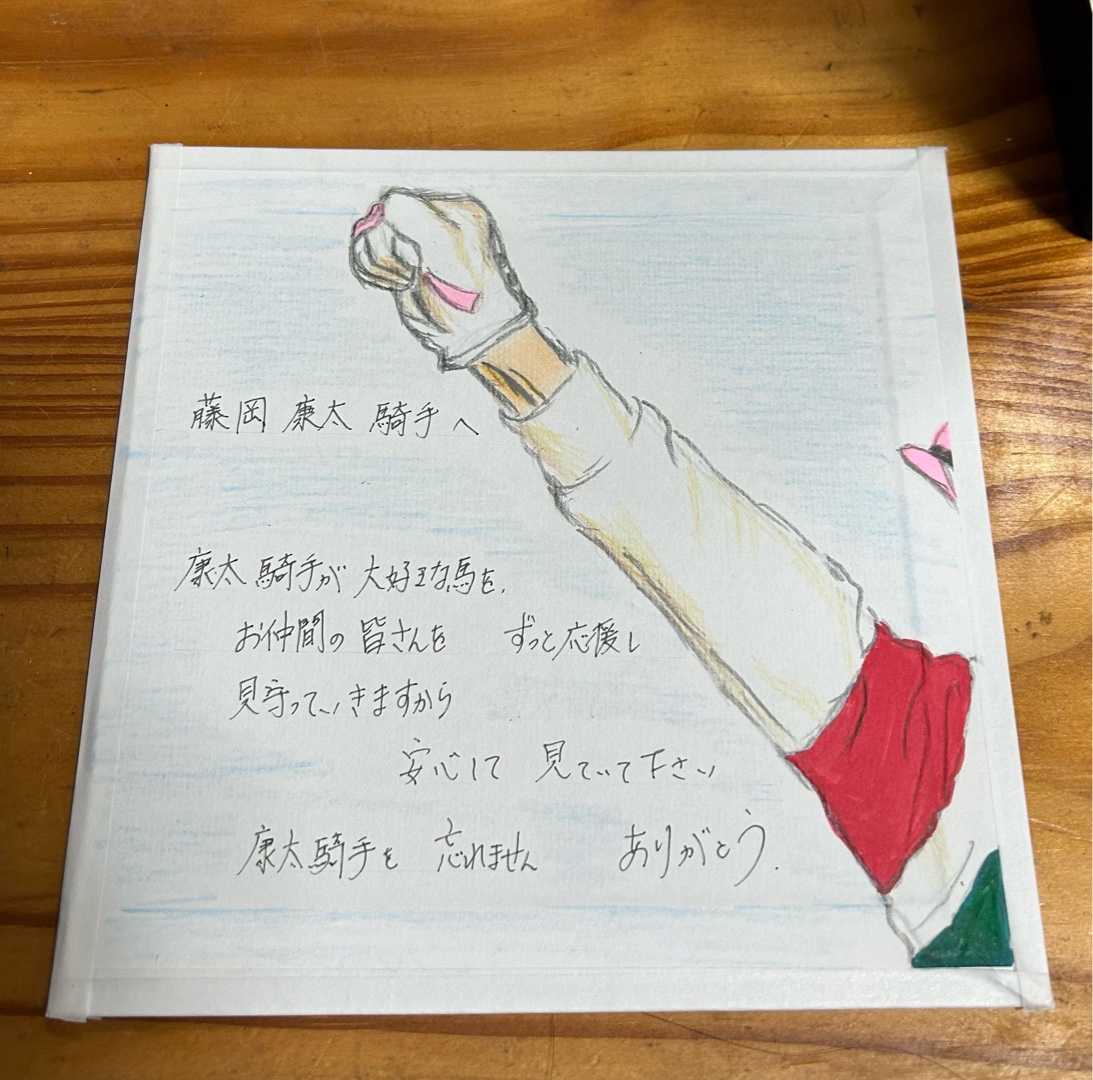 藤岡 康太 騎手へ
康太 騎手が 大好きな馬を、
お仲間の 皆さんを ずっと応援し
見守っていきますから
安心して 見ていて下さい
康太騎手を 忘れません ありがとう.